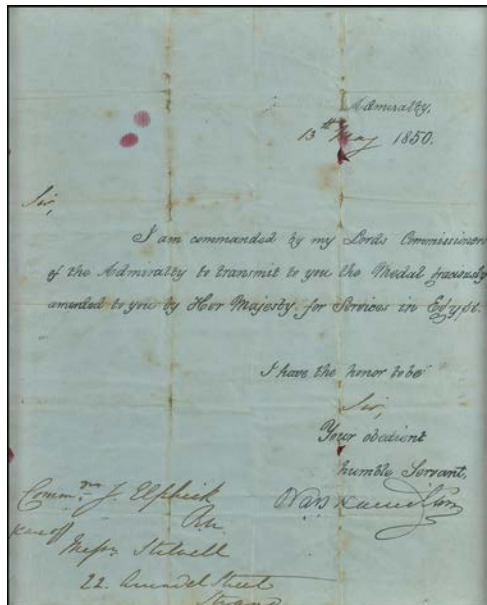 Admiralty,
13th May 1850.
Sir,
I am commanded by my Lords Commissioners
of the Admiralty to transmit to you the Medal graciously
awarded to you by Her Majesty, for Services in Egypt.
I have the honor to be
Sir,
Your obedient
humble Servant,
Comm.r J. Elphick
Rn
care of Messrs Stilwell
22. Arundel Street
Strand